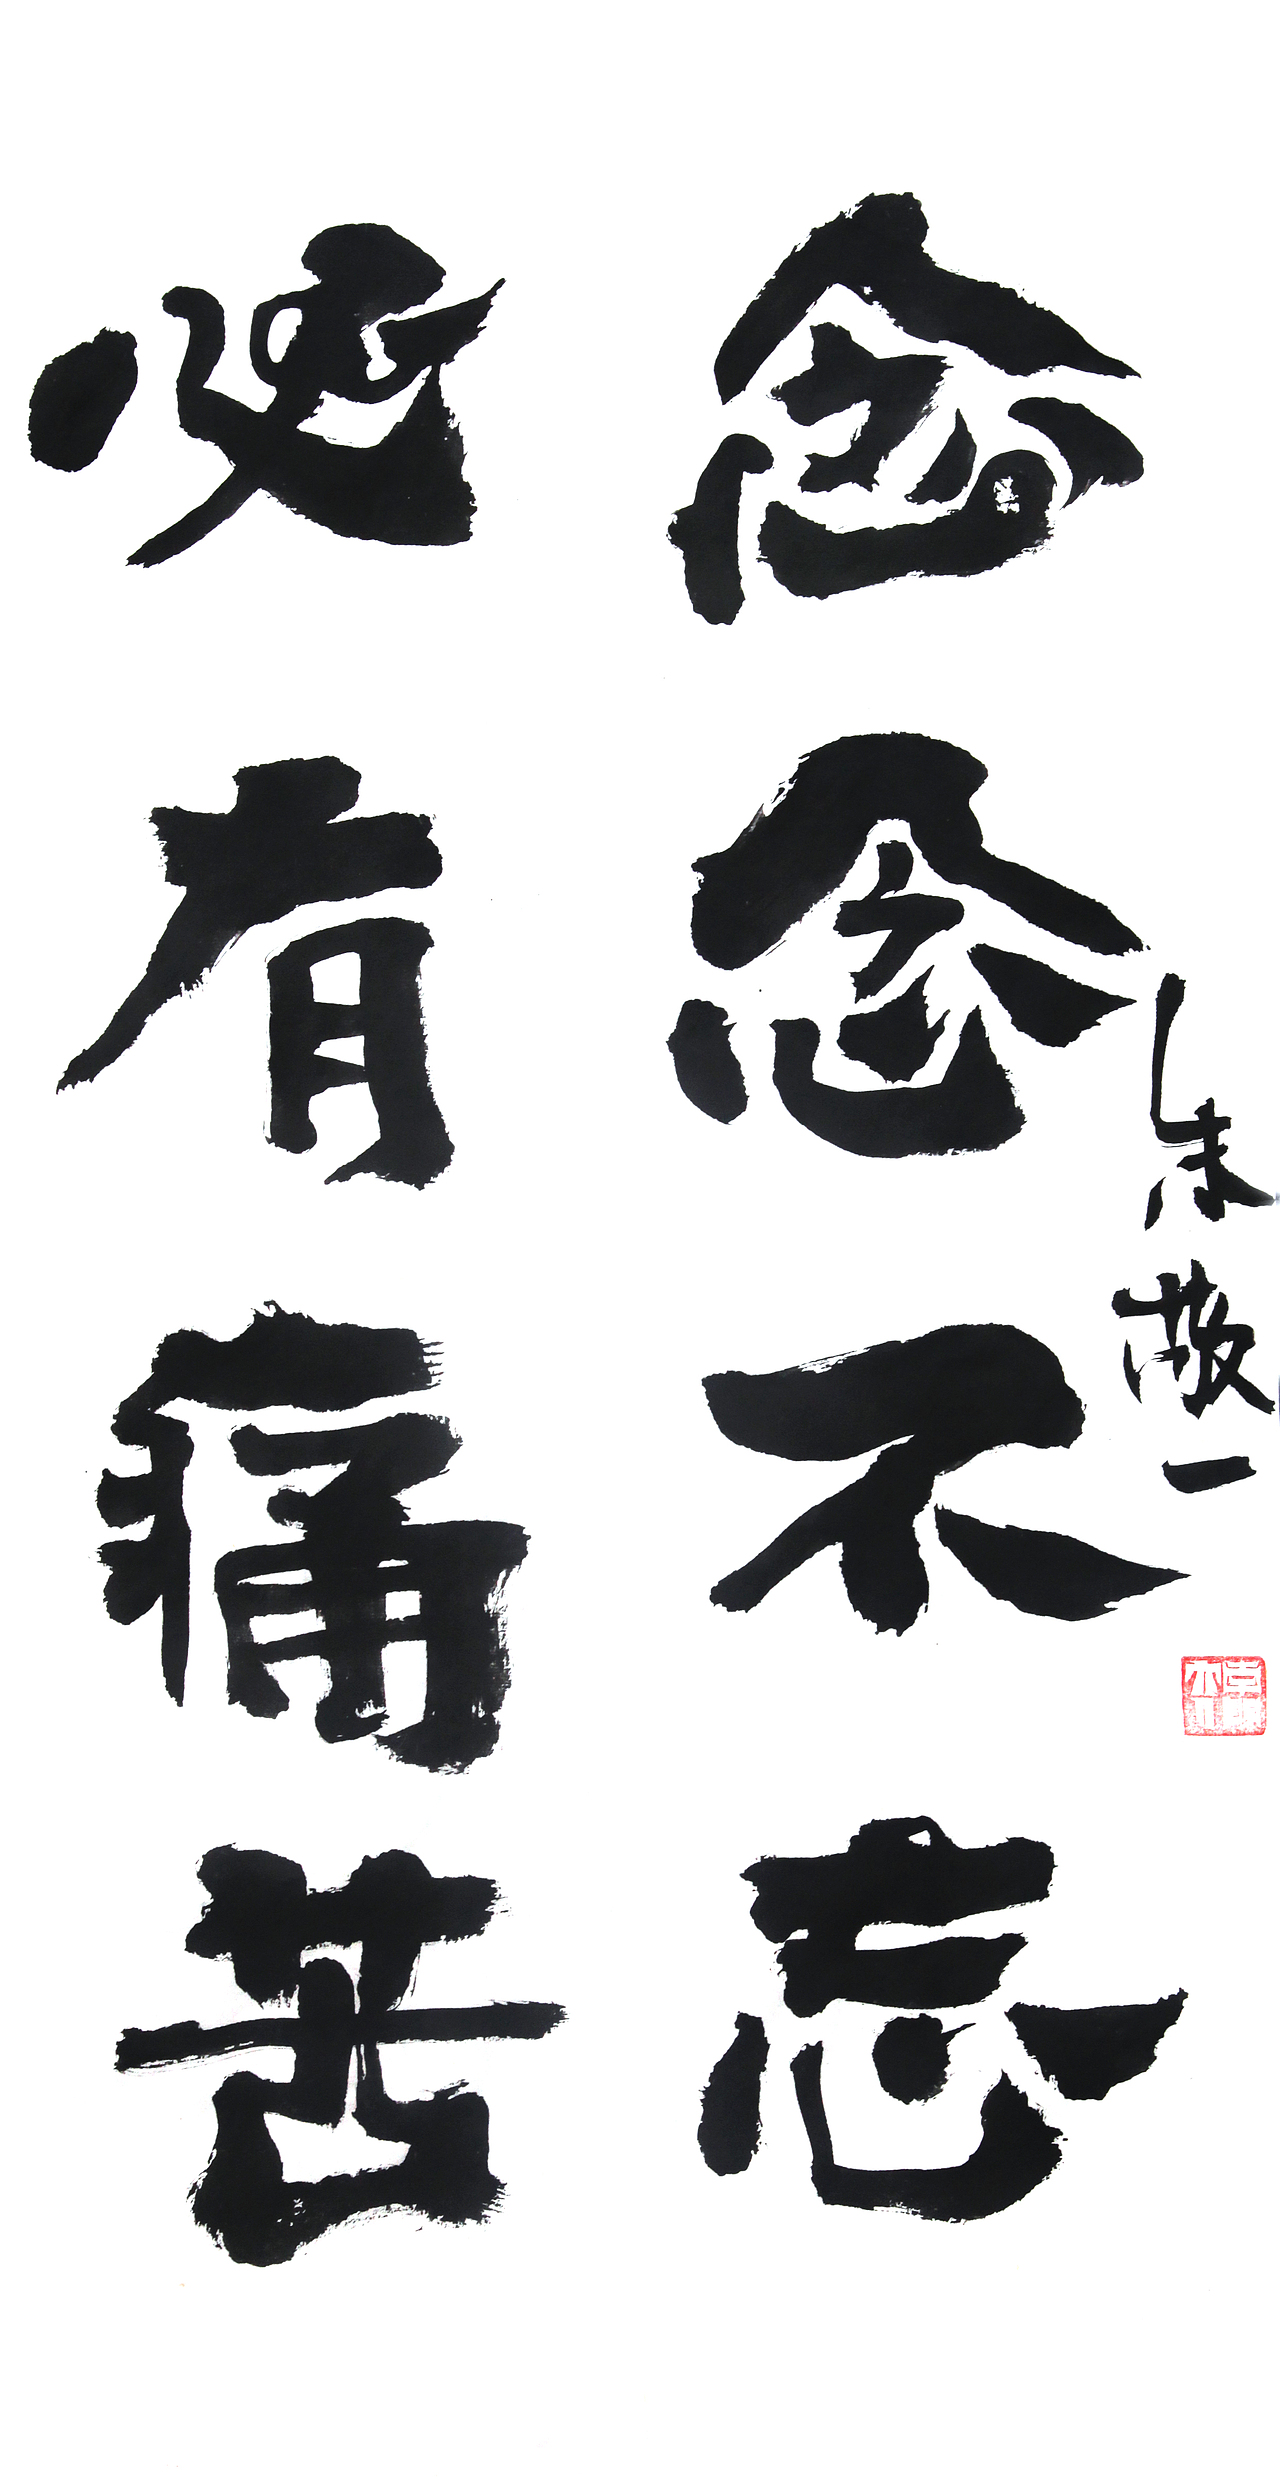 念念不忘
必有痛苦
朱敬一